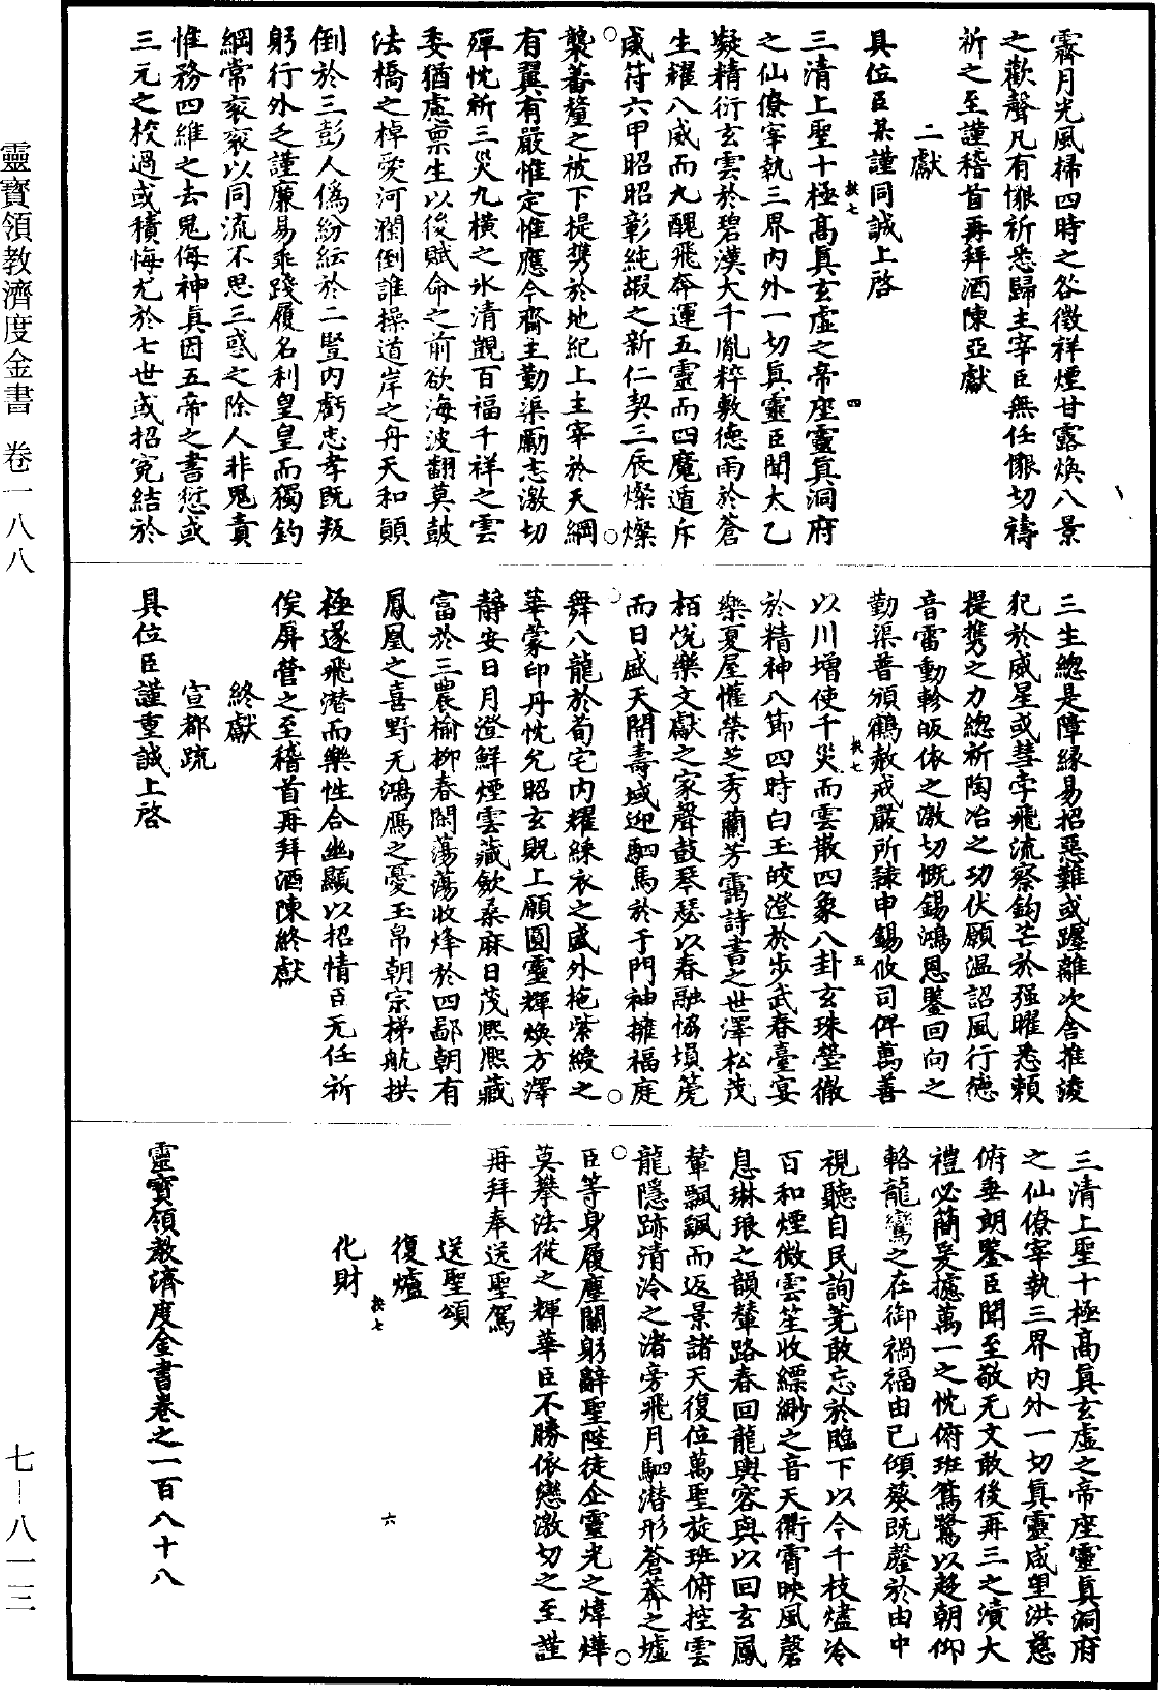 霽月光風掃四時之咎徵祥煙甘露煥八景
之歡聲凡有懇祈悉歸主宰臣無任懇切禱
祈之至謹稽首再拜酒陳亞獻
二獻
具位臣某謹同誠上啓
三清上聖十極高真玄虛之帝座靈真洞府
之仙僚宰執三界內外一切真靈臣聞太乙
凝精衍玄雲於碧漢大千胤粹敷德雨於蒼
生耀八威而九醜飛奔運五靈而四魔遁斥
威符六甲昭昭彰純嘏之新仁契三辰燦燦
襲蕃釐之被下提携於地紀上主宰於天綱
有翼有嚴惟定惟應今齋主勤渠勵志激切
殫忱祈三災九橫之冰清覬百福千祥之雲
委猶慮稟生以後賦命之前欲海波翻莫鼓
法橋之棹愛河瀾倒誰操道岸之舟天和顛
倒於三彭人僞紛紜於二豎內虧忠孝既叛
躬行外乏謹廉易乖踐履名利皇皇而獨釣
綱常衮衮以同流不思三惑之除人非鬼責
惟務四維之去鬼侮神真因五帝之書愆或
三元之校過或積悔尤於七世或招冤結於
三生總是障緣易招惡難或躔離次舍推淩
犯於威星或彗孛飛流察鈎芒於强曜悉賴
提携之力總祈陶冶之功伏願溫詔風行德
音雷動軫皈依之激切慨錫鴻恩鑒回向之
勤渠普頒鶴赦戒嚴所隸申錫攸司俾萬善
以川增使千災而雲散四象八卦玄珠瑩徹
於精神八節四時白玉皎澄於步武春臺宴
樂夏屋懽榮芝秀蘭芳靄詩書之世澤松茂
栢悅樂文獻之家聲鼓琴瑟以春融恊塤箎
而日盛天開壽域迎駟馬於于門神擁福庭
舞八龍於荀宅內耀綵衣之盛外拖紫綬之
華蒙印丹忱允昭玄貺上願圓靈輝煥方澤
靜安日月澄鮮煙雲藏斂桑麻日茂熙熙藏
富於三農榆柳春閑蕩蕩收烽於四鄙朝有
鳳凰之喜野无鴻鴈之憂玉帛朝宗梯航拱
極遂飛潛而樂性合幽顯以招情臣无任祈
俟屏營之至稽首再拜酒陳終獻
終獻
宣都疏
具位臣謹重誠上啓
三清上聖十極高真玄虛之帝座靈真洞府
之仙僚宰執三界內外一切真靈咸望洪慈
俯垂朗鑒臣聞至敬无文敢後再三之瀆大
禮必簡爰攄萬一之忱俯班鴛鷺以趍朝仰
輅龍鸞之在御禍福由已傾葵既罄於由中
視聽自民詢蕘敢忘於臨下以今千枝燼冷
百和煙微雲笙收縹緲之音天衢霄映風磬
息琳琅之韻輦路春回龍輿容與以回玄鳳
輦飄颻而返景諸天復位萬聖旋班俯控雲
龍隱跡清泠之渚旁飛月駟潛形蒼莽之墟
臣等身履塵闤躬辭聖陛徒企靈光之煒燁
莫攀法從之輝華臣不勝依戀激切之至謹
再拜奉送聖駕
送聖頌
復爐
化財
靈寶領教濟度金書卷之一百八十八
靈寶領教濟度金書 卷一八八
七—八一三